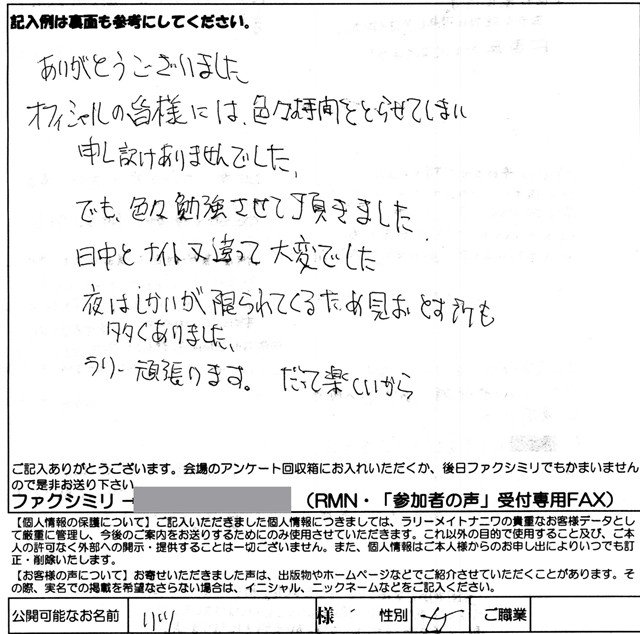 記入例は裏面も参考にしてください。
ありがとうございました
オフィシャルの皆様には、色々お手間をとらせてしまい
申し訳ありませんでした。
でも、色々勉強させて頂きました
日中とナイト又違って大変でした
夜はしかいが限られてくるため見おとす所も
多くありました、
ラリー頑張ります。 だって楽しいから
ご記入ありがとうございます。会場のアンケート回収箱にお入れいただくか、後日ファクシミリでもかまいません
ので是非お送り下さい
ファクシミリ→ (RMN・「参加者の声」受付専用FAX)
【個人情報の保護について】ご記入いただきました個人情報につきましては、ラリーメイトナニワの貴重なお客様データとし
て厳重に管理し、今後のご案内をお送りするためにのみ使用させていただきます。これ以外の目的で使用すること及び、ご本
人の許可なく外部への開示・提供することは一切ございません。また、個人情報はご本人様からのお申し出によりいつでも訂
正・削除いたします。
【お客様の声について】お寄せいただきました声は、出版物やホームページなどでご紹介させていただくことがあります。そ
の際、実名での掲載を希望なさらない場合は、イニシャル、ニックネームなどをご記入ください。
公開可能なお名前 様 性別 女 ご職業